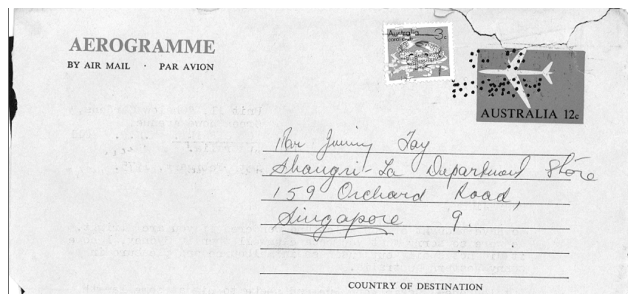 AEROGRAMME
BY AIR MAIL · PAR AVION
Australia 3c
AUSTRALIA 12c
Mr Jimmy Tay
Shangri-La Department Store
159 Orchard Road,
Singapore 9.
COUNTRY OF DESTINATION